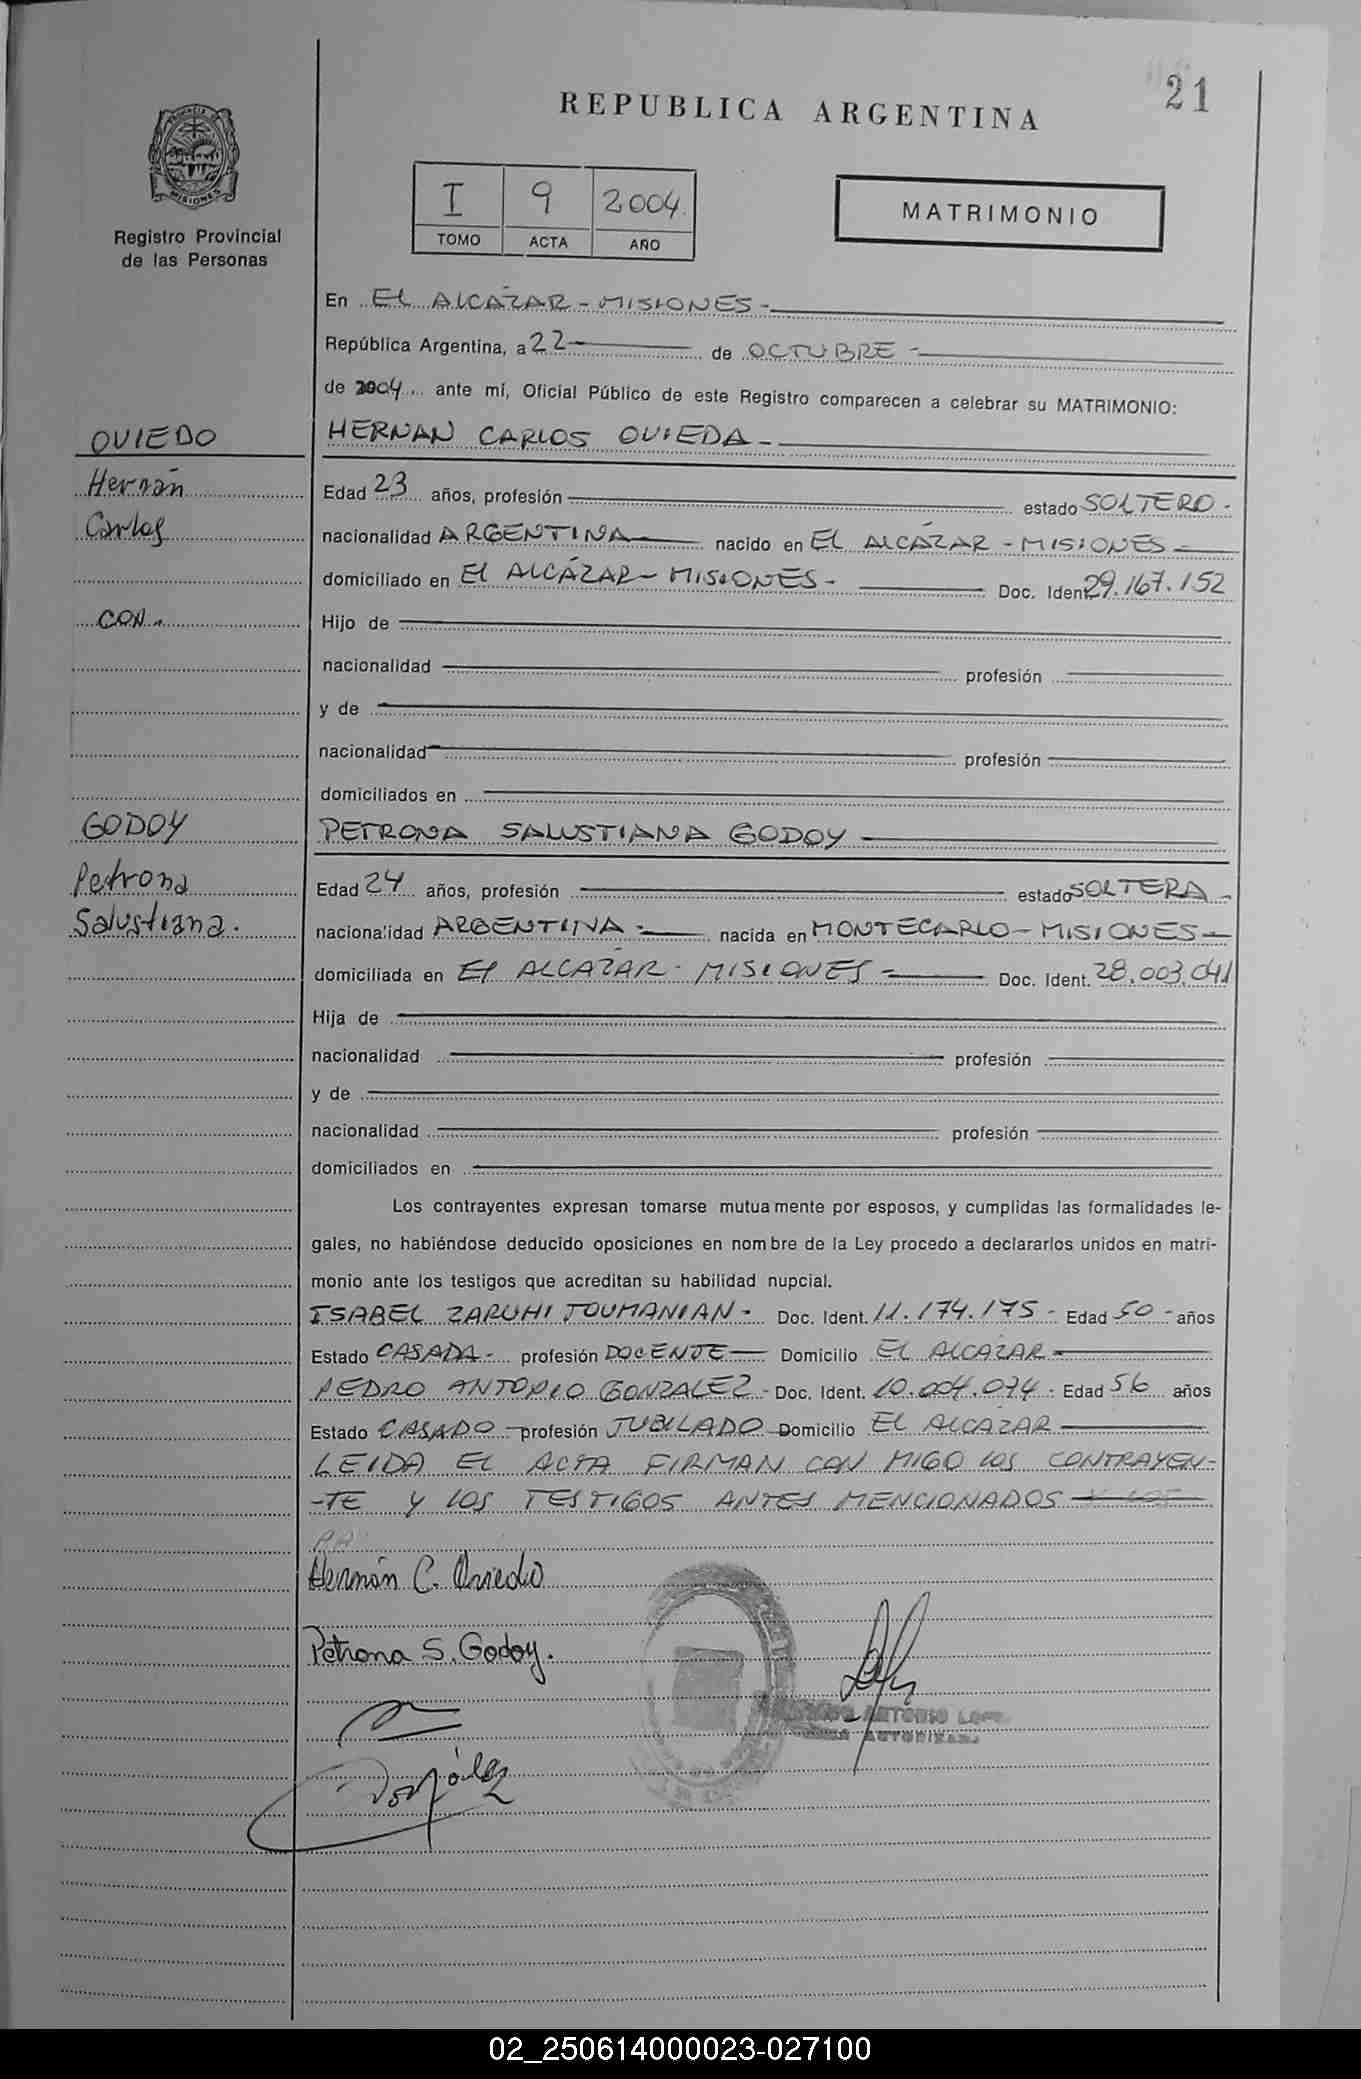 21
REPUBLICA ARGENTINA
MISIONES
Registro Provincial
de las Personas
I 9 2004
TOMO ACTA AÑO
MATRIMONIO
En EL ALCAZAR - MISIONES -
República Argentina, a 22 de OCTUBRE -
de 2004 ante mí, Oficial Público de este Registro comparecen a celebrar su MATRIMONIO:
OVIEDO
HERNAN CARLOS OVIEDA -
Hernán
Edad 23 años, profesión estado SOLTERO -
Carlos
nacionalidad ARGENTINA nacido en EL ALCÁZAR - MISIONES -
domiciliado en El ALCÁZAR - MISIONES - Doc. Ident 29.167.152
CON.
Hijo de
nacionalidad profesión
y de
nacionalidad profesión
domiciliados en
GODOY
PETRONA SALUSTIANA GODOY
Petrona
Edad 24 años, profesión estado SOLTERA -
Salustiana.
nacionalidad ARGENTINA - nacida en MONTECARLO - MISIONES -
domiciliada en El ALCAZAR - MISIONES - Doc. Ident. 28.003.041
Hija de
nacionalidad profesión
y de
nacionalidad profesión
domiciliados en
Los contrayentes expresan tomarse mutuamente por esposos, y cumplidas las formalidades le-
gales, no habiéndose deducido oposiciones en nombre de la Ley procedo a declararlos unidos en matri-
monio ante los testigos que acreditan su habilidad nupcial.
ISABEL ZARUHI TOUMANIAN - Doc. Ident. 11.174.175 - Edad 50 - años
Estado CASADA - profesión DOCENTE Domicilio EL ALCAZAR -
PEDRO ANTONIO GONZALEZ - Doc. Ident. 10.004.074 - Edad 56 años
Estado CASADO - profesión JUBILADO Domicilio EL ALCAZAR
LEIDA EL ACTA FIRMAN CON MIGO LOS CONTRAYEN-
-TE Y LOS TESTIGOS ANTES MENCIONADOS
Hernán C. Oviedo
Petrona S. Godoy.
ANTONIO LOPE
González
02_250614000023-027100